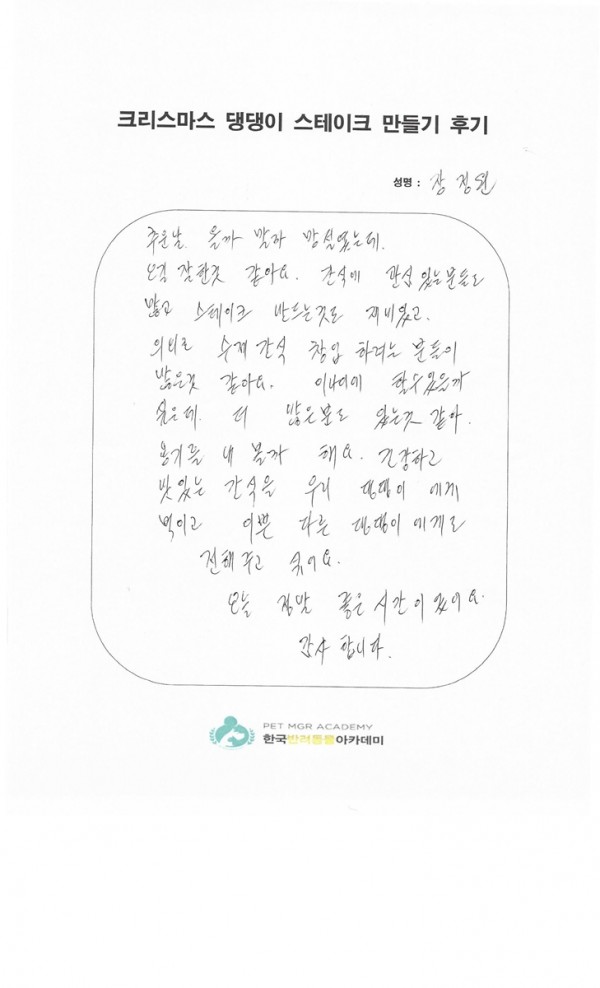 크리스마스 댕댕이 스테이크 만들기 후기
성명 : 장 정원
추운날. 올까 말까 망설였는데.
오길 잘한것 같아요. 간식에 관심 있는분들도
많고 스테이크 만드는것도 재미있고.
의외로 수제 간식 창업 하려는 분들이
많은것 같아요. 이나이에 할수있을까
싶은데. 더 많은분도 있는것 같아.
용기를 내 볼까 해요. 건강하고
맛있는 간식을 우리 댕댕이 에게
먹이고 이쁜 다른 댕댕이 에게도
전해 주고 싶어요.
오늘 정말 좋은 시간이 었어요.
감사 합니다.
PET MGR ACADEMY
한국반려동물아카데미